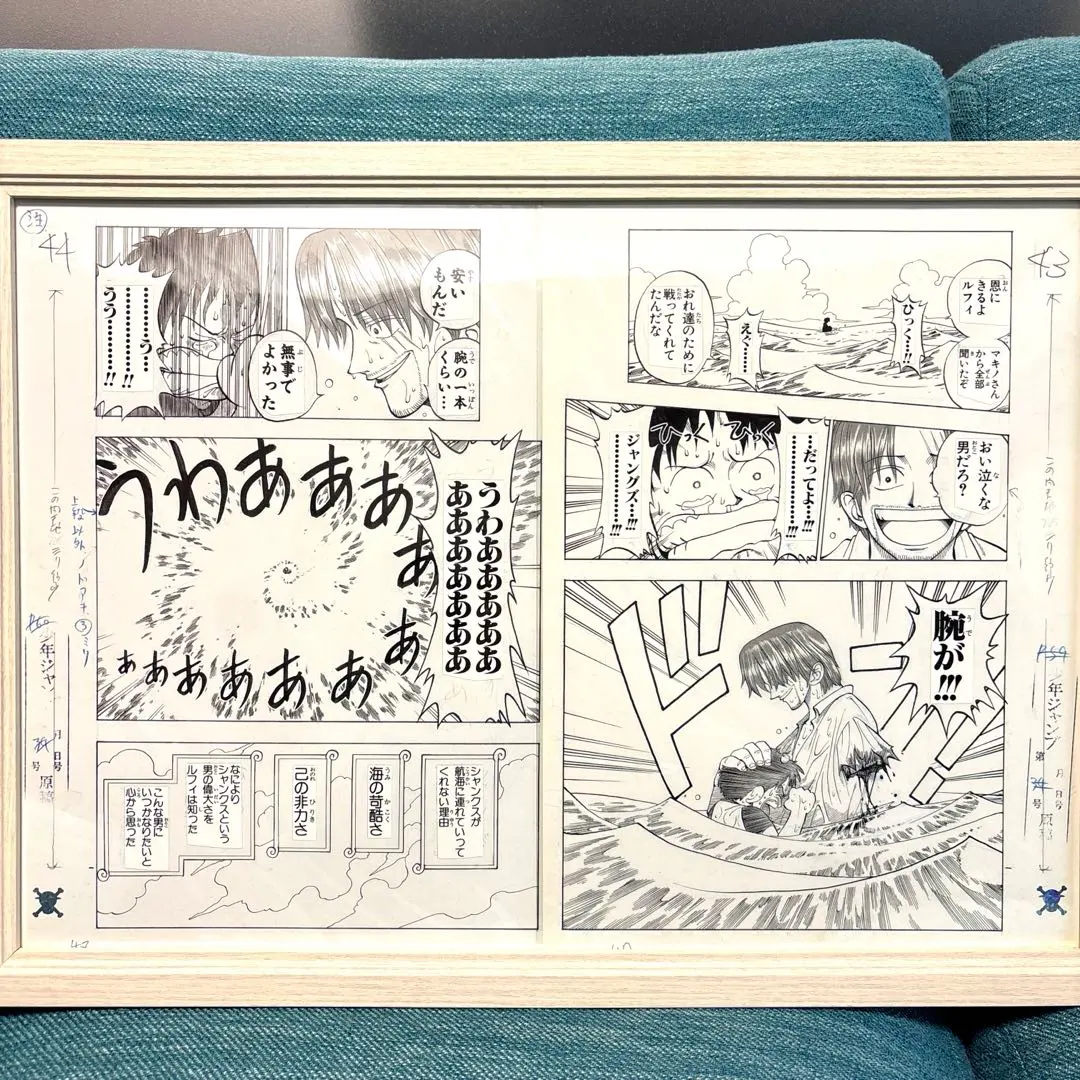 43
恩に
きるよ
ルフィ
マキノさん
から全部
聞いたぞ
ひっ…!!
えぐ……
おれ達のために
戦ってくれて
たんだな
おい泣くな
男だろ?
…だってよ…!!!
ひっく
ひっく
ジャングズ…!!!
腕が!!!
ドド
44
安い
もんだ
腕の一本
くらい…
無事で
よかった
…………う…
…………………
うう…………!!
うわあああああああ
ああああああああ
うわああああああああああああ
シャンクスが
航海に連れていって
くれない理由
海の苛酷さ
己の非力さ
なにより
シャンクスという
男の偉大さを
ルフィは知った
こんな男に
いつかなりたいと
心から思った
年ジャンプ
第
月
日号
号
原稿
上段以外
ノドアキ
③ミリ
年ジャン
月
日号
号
原稿